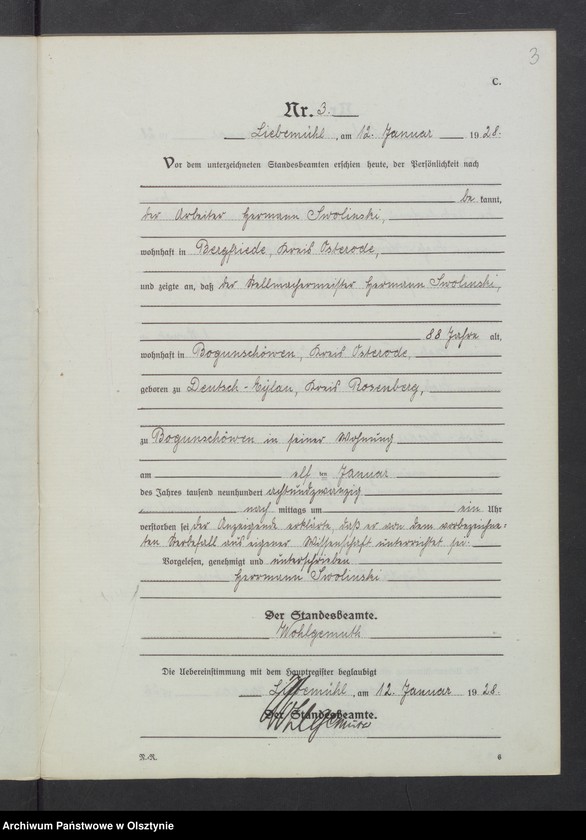 3
C.
Nr. 3.
Liebemühl, am 12. Januar 1928.
Vor dem unterzeichneten Standesbeamten erschien heute, der Persönlichkeit nach
be kannt,
der Arbeiter Hermann Swolinski,
wohnhaft in Bergfriede, Kreis Osterode,
und zeigte an, daß der Stellmachermeister Hermann Swolinski,
88 Jahre alt,
wohnhaft in Bogunschöwen, Kreis Osterode,
geboren zu Deutsch-Eylau, Kreis Rosenberg,
zu Bogunschöwen in seiner Wohnung
am elften Januar
des Jahres tausend neunhundert achtundzwanzig
nach mittags um ein Uhr
verstorben sei, der Anzeigende erklärte, daß er von dem vorbezeichne-
ten Sterbefall aus eigener Wissenschaft unterrichtet sei.
Vorgelesen, genehmigt und unterschrieben
Herrmann Swolinski
Der Standesbeamte.
Wohlgemuth
Die Uebereinstimmung mit dem Hauptregister beglaubigt
Liebemühl, am 12. Januar 1928.
Der Standesbeamte.
Wohlgemuth
N.-R.
6
Archiwum Państwowe w Olsztynie